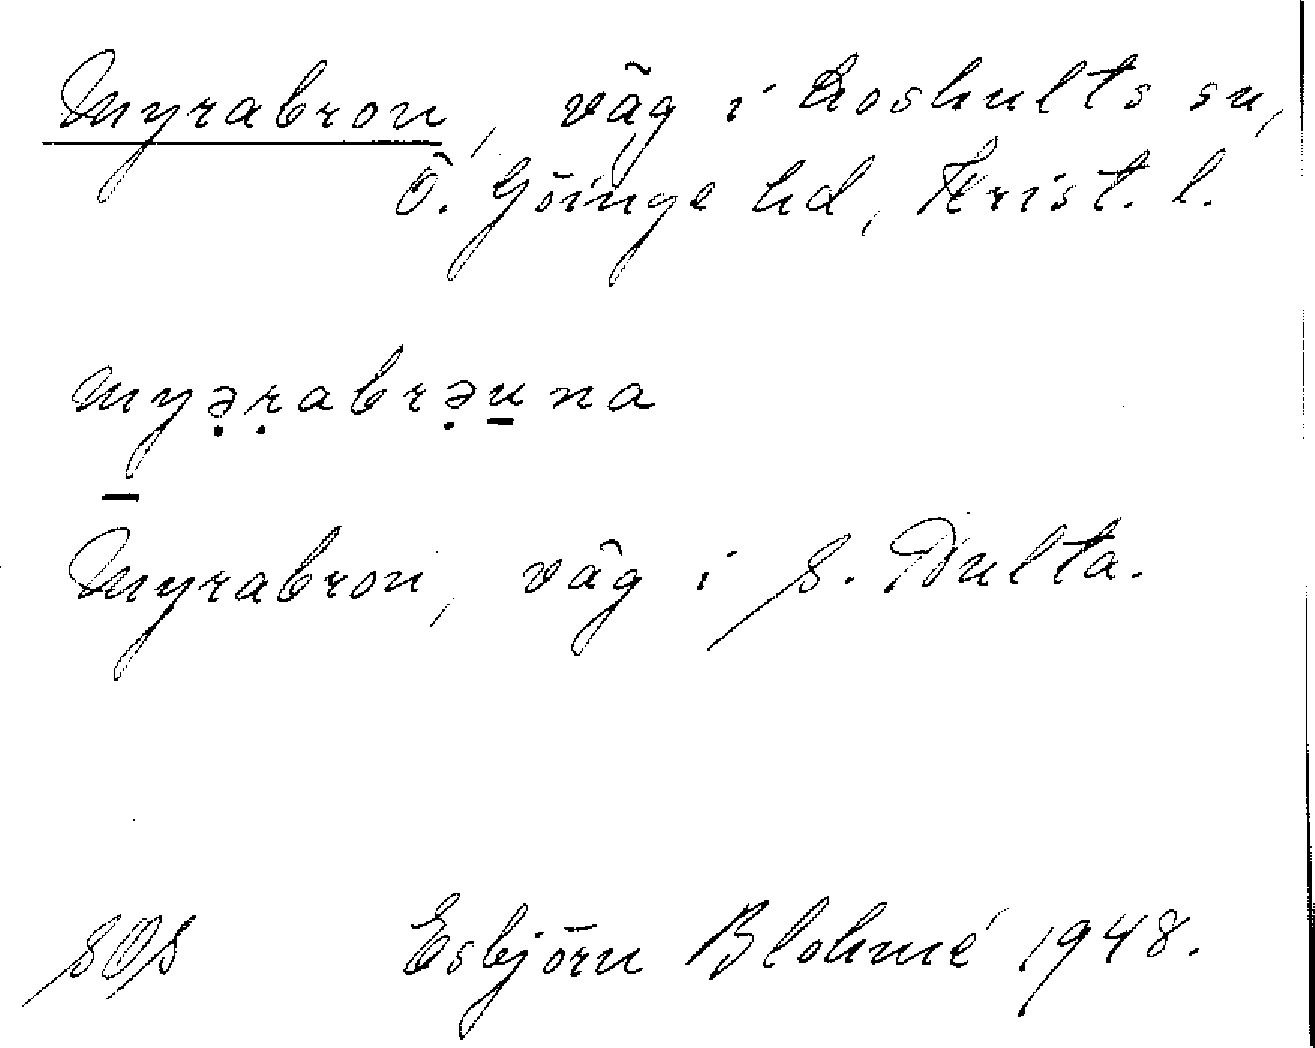 Myrabron, väg i Loshults sn,
Ö. Göinge hd, Krist. l.
my̠ə̣ṛabrə̣u̠na
Myrabron, väg i S.
SOS Esbjörn Blohmé 1948.